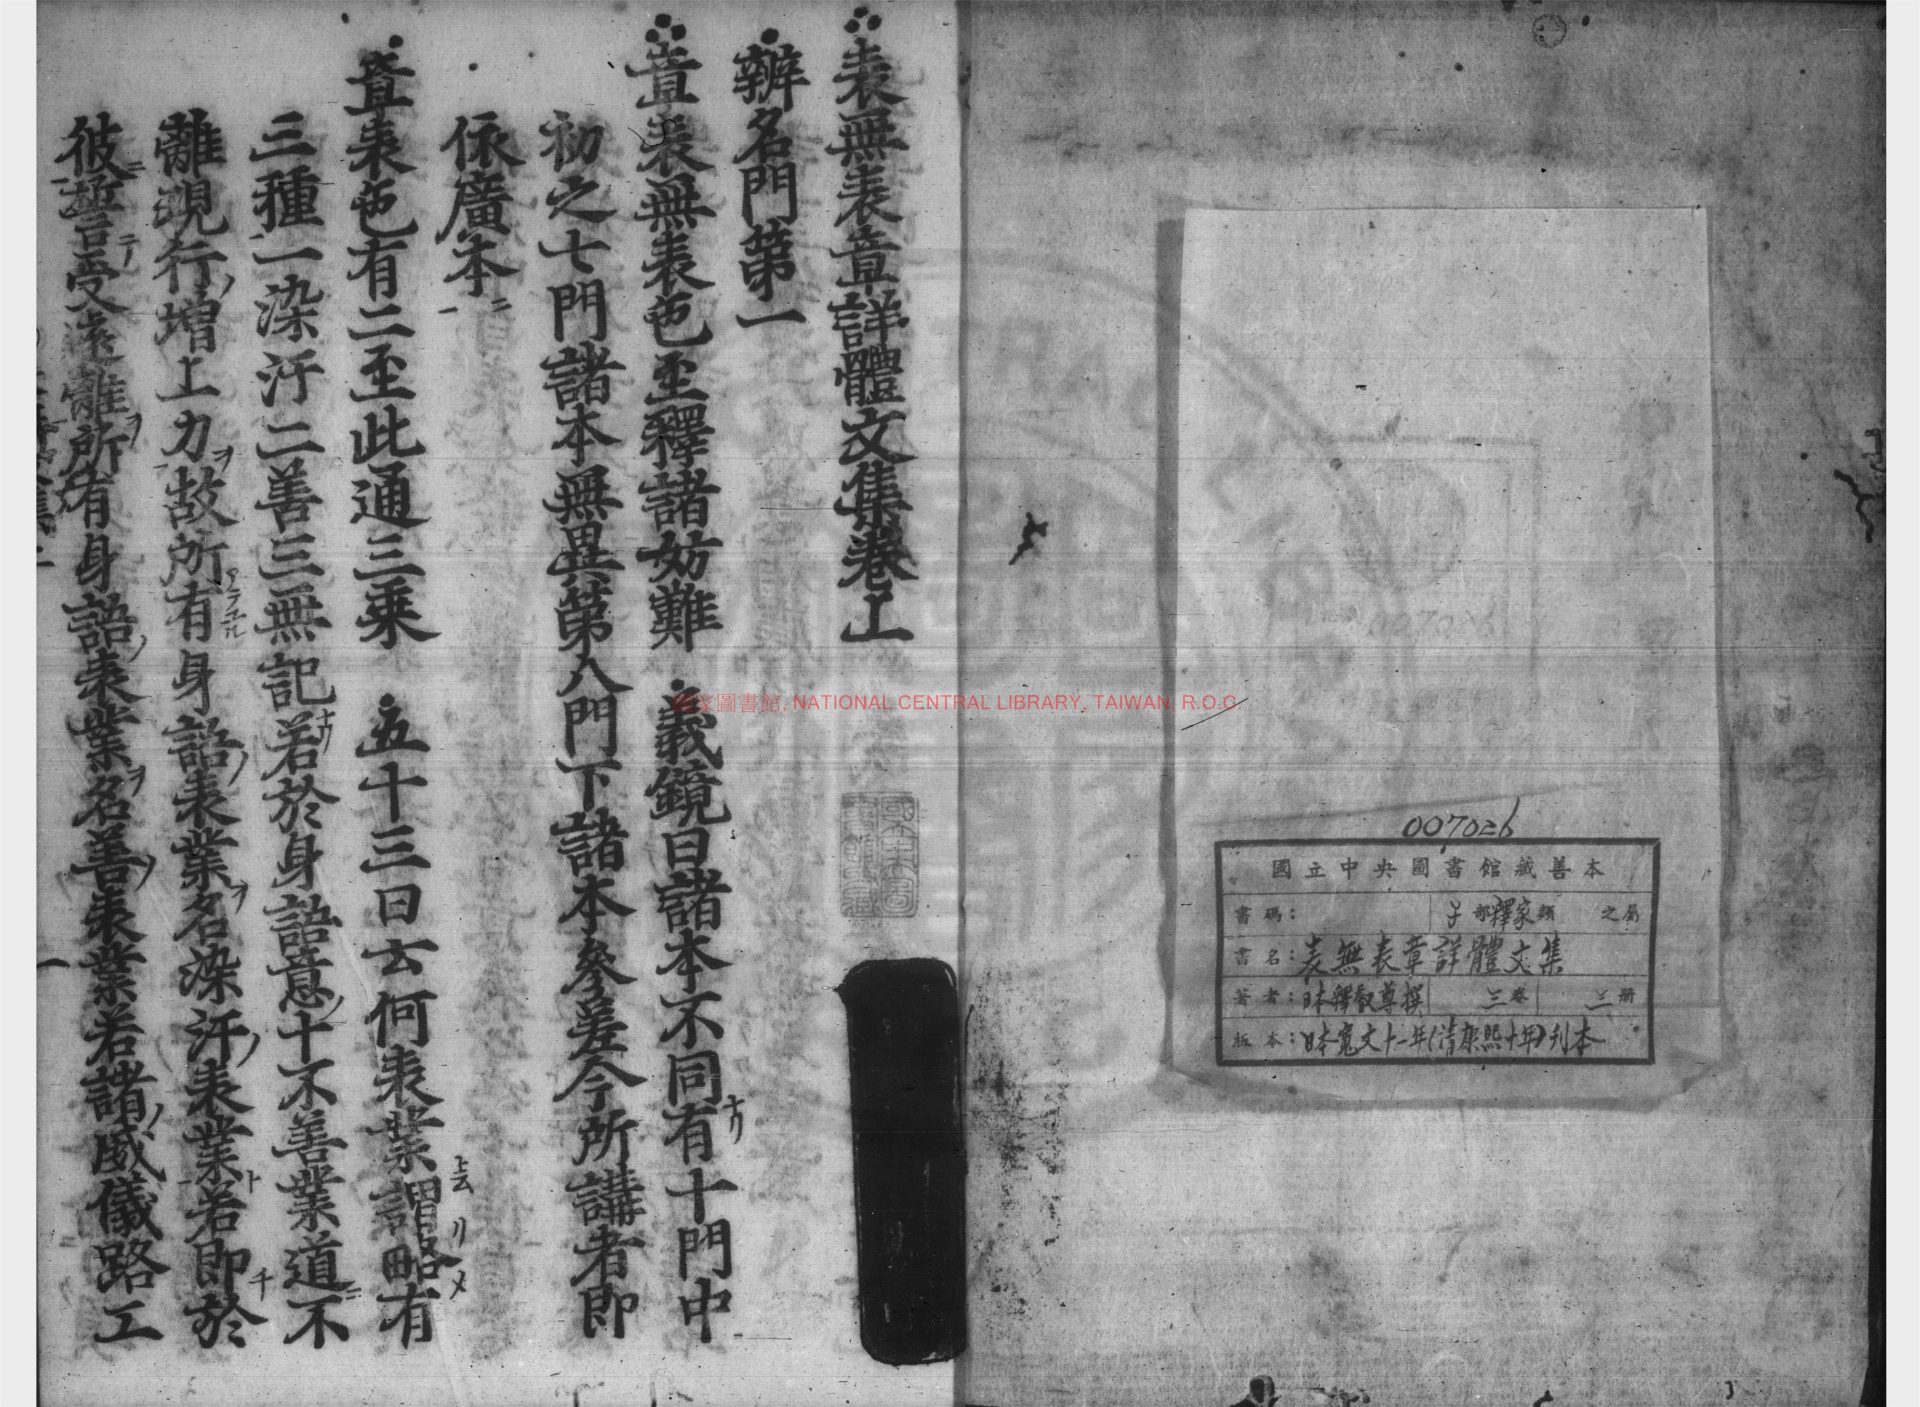 007026
國立中央圖書館藏善本
書碼: 子部釋家類 之屬
書名:表無表章詳體文集
著者:日本釋叡尊撰 三卷 三册
板本:日本寬文十一年(清康熙十年)刊本
表無表章詳體文集卷上
辨名門第一
章表無表色至釋諸妨難 義鏡曰諸本不同有十門中
初之七門諸本無異第八門下諸本參差今所講者即
依廣本
章表色有二至此通三乘 五十三曰云何表業謂略有
三種一染汙二善三無記若於身語意十不善業道不
離現行增上力故所有身語表業名染汙表業若即於
彼誓受遠離所有身語表業名善表業若諸威儀路工
國家圖書館, NATIONAL CENTRAL LIBRARY, TAIWAN, R.O.C.